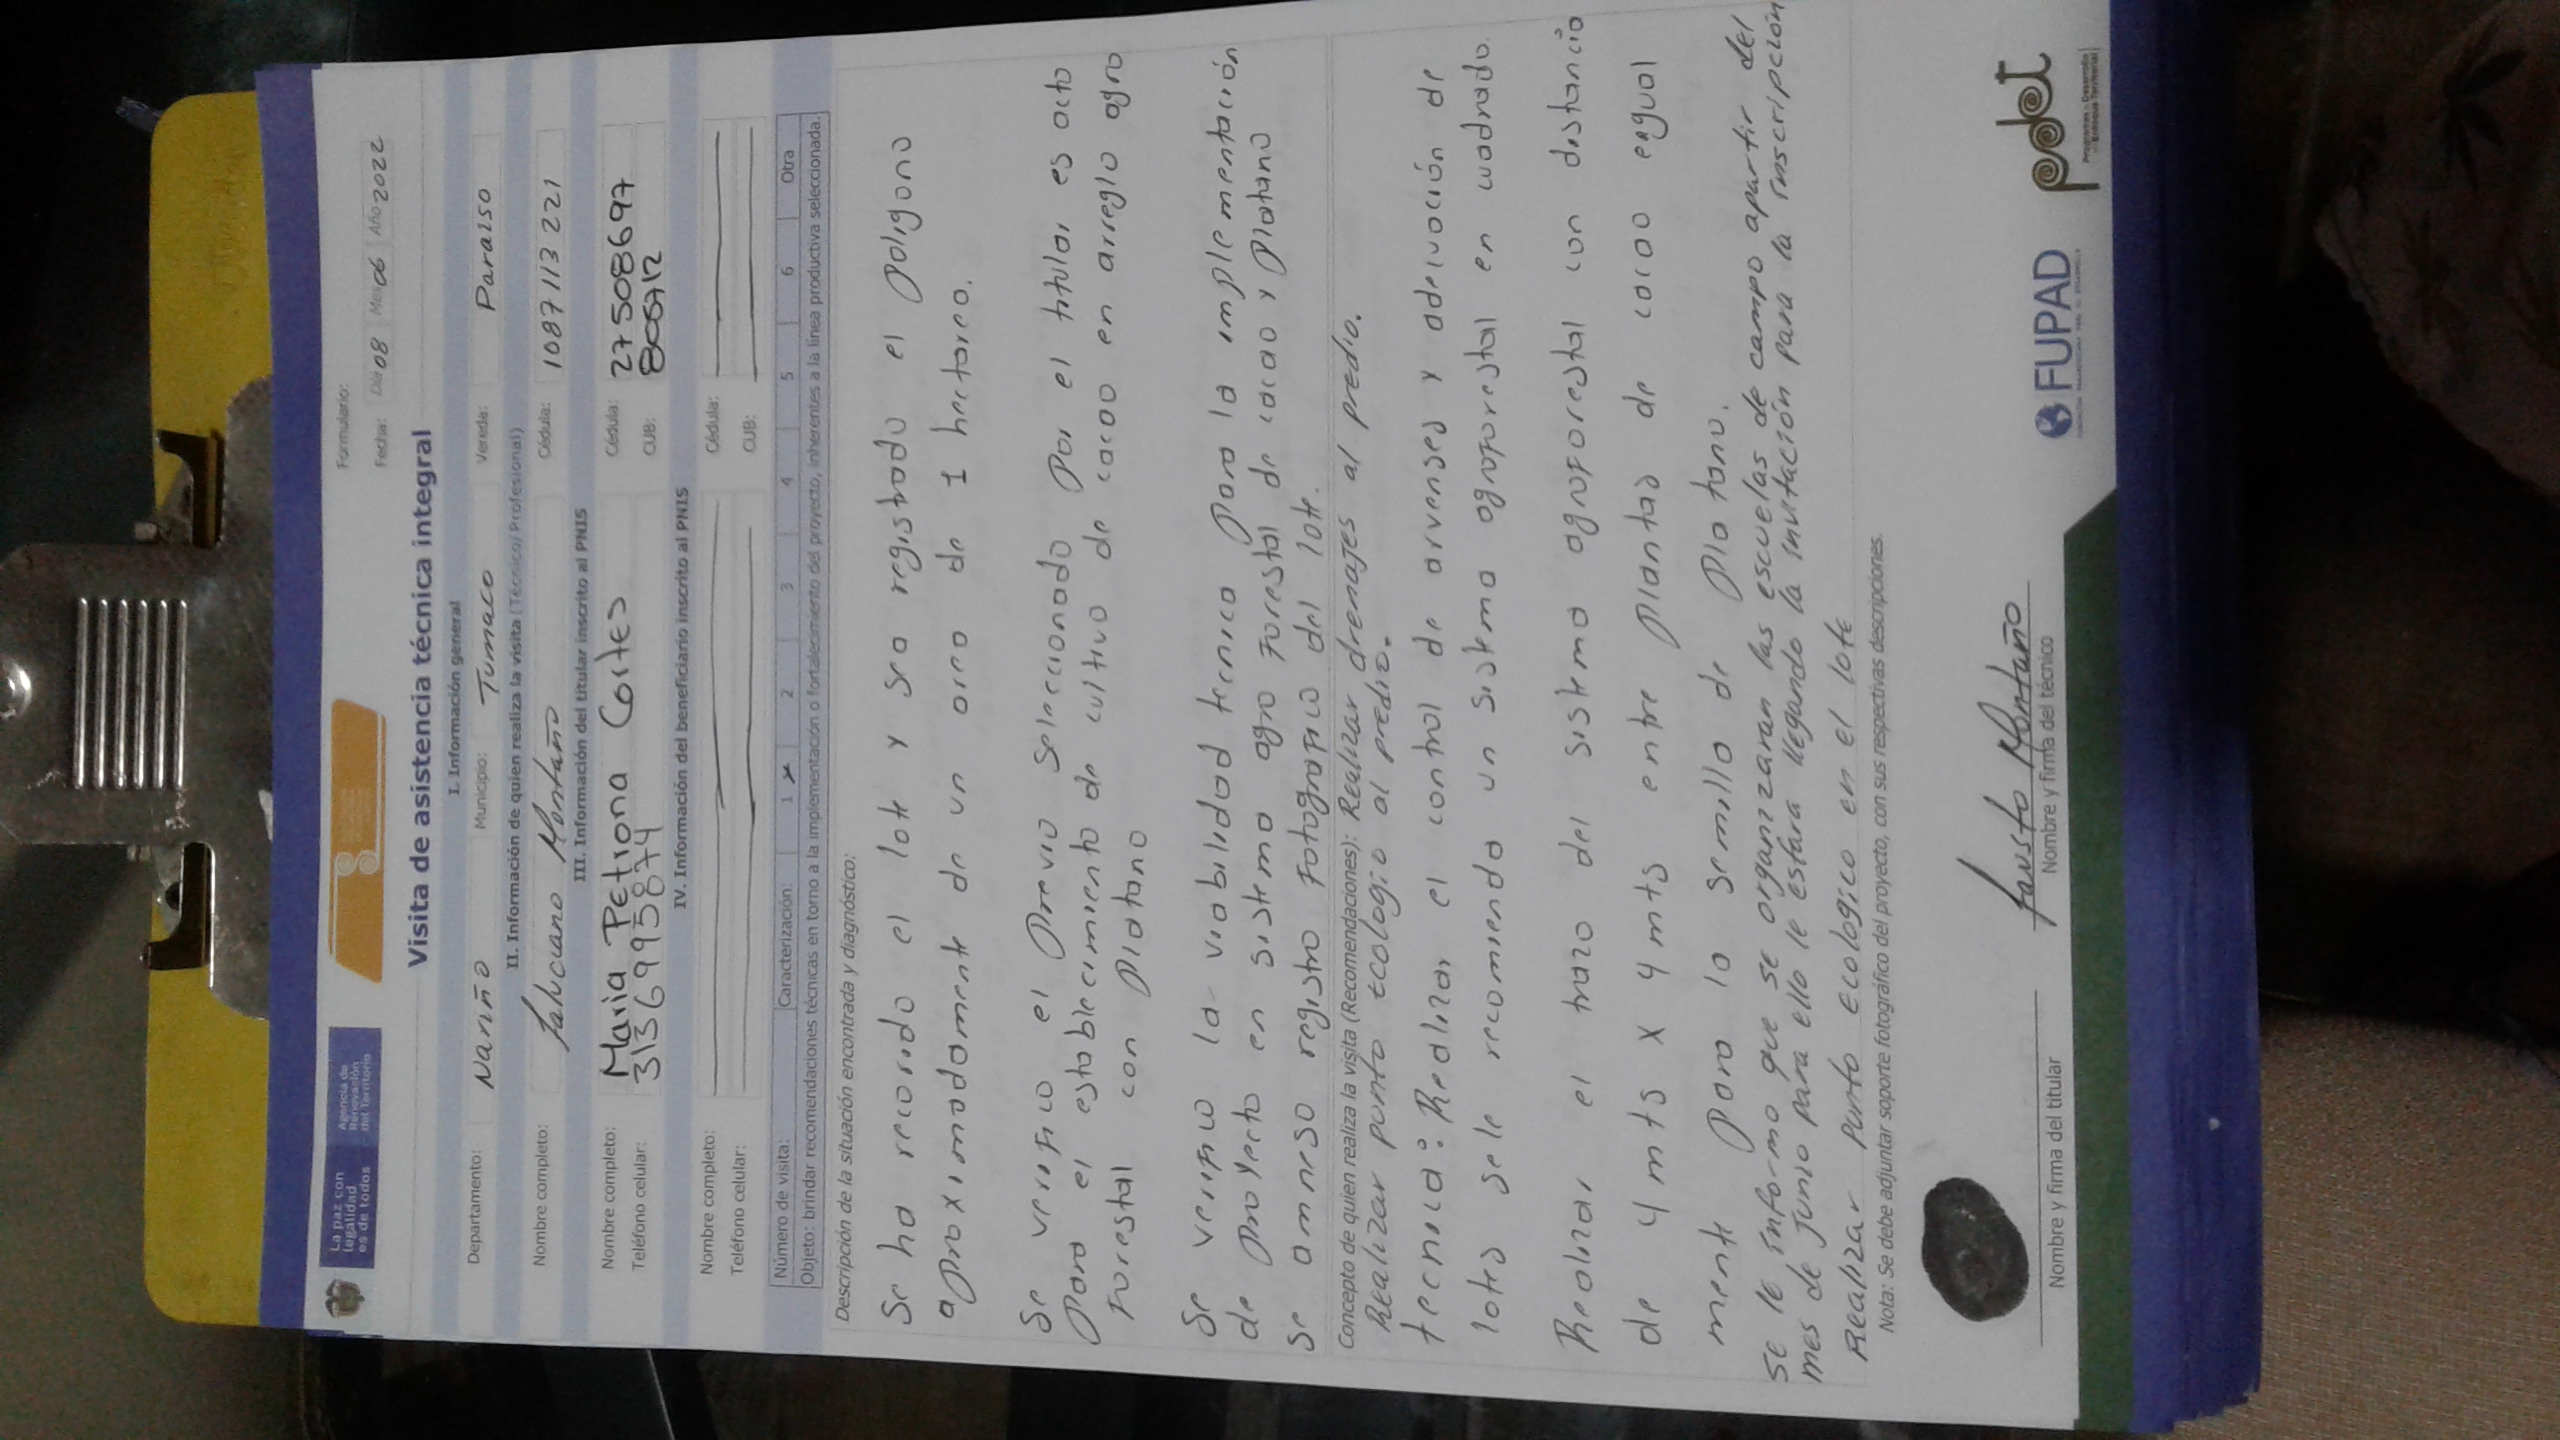 La paz con
legalidad
es de todos
Agencia de
Renovación
del Territorio
Formulario:
Fecha: Día 08 Mes 06 Año 2022
Visita de asistencia técnica integral
I. Información general
Departamento: Nariño Municipio: Tumaco Vereda: Paraiso
II. Información de quien realiza la visita (Técnico/Profesional)
Nombre completo: Montaño Cédula: 1087113221
III. Información del titular inscrito al PNIS
Nombre completo: Maria Petrona Cortes Cédula: 27508697
Teléfono celular: 3136995874 CUB:
IV. Información del beneficiario inscrito al PNIS
Nombre completo: Cédula:
Teléfono celular: CUB:
Número de visita: Caracterización: 1 x 2 3 4 5 6 Otra
Objeto: brindar recomendaciones técnicas en torno a la implementación o fortalecimiento del proyecto, inherentes a la línea productiva seleccionada.
Descripción de la situación encontrada y diagnóstico:
Se ha recorido el lote y sea registrado el poligono
aproximadamente de un area de 1 hectarea.
Se verifico el previo seleccionado por el titular es acto
para el establecimiento de cultivo de cacao en arreglo agro
Forestal con platano
Se verifico la viabilidad tecnica para la implementación
de proyecto en sistema agro Forestal de cacao y platano
Se anneso registro Fotografico del lote.
Concepto de quien realiza la visita (Recomendaciones): Realizar drenajes al predio.
Realizar punto ecologio al predio.
tecnica: Realizar el control de arvenses y adecuación de
lotes se le recomienda un sistema agroforestal en cuadrado.
Realizar el trazo del sistema agroforestal con distancia
de 4 mts x 4 mts entre plantas de cacao e igual
mente para la semilla de platano.
se le informo que se organizaran las escuelas de campo apartir del
mes de junio para ello le estara llegando la invitación para la inscripción
Realizar punto ecologico en el lote
Nota: Se debe adjuntar soporte fotográfico del proyecto, con sus respectivas descripciones.
Fausto Montaño
Nombre y firma del titular
Nombre y firma del técnico
FUPAD
pdet
Programas de Desarrollo
con Enfoque Territorial